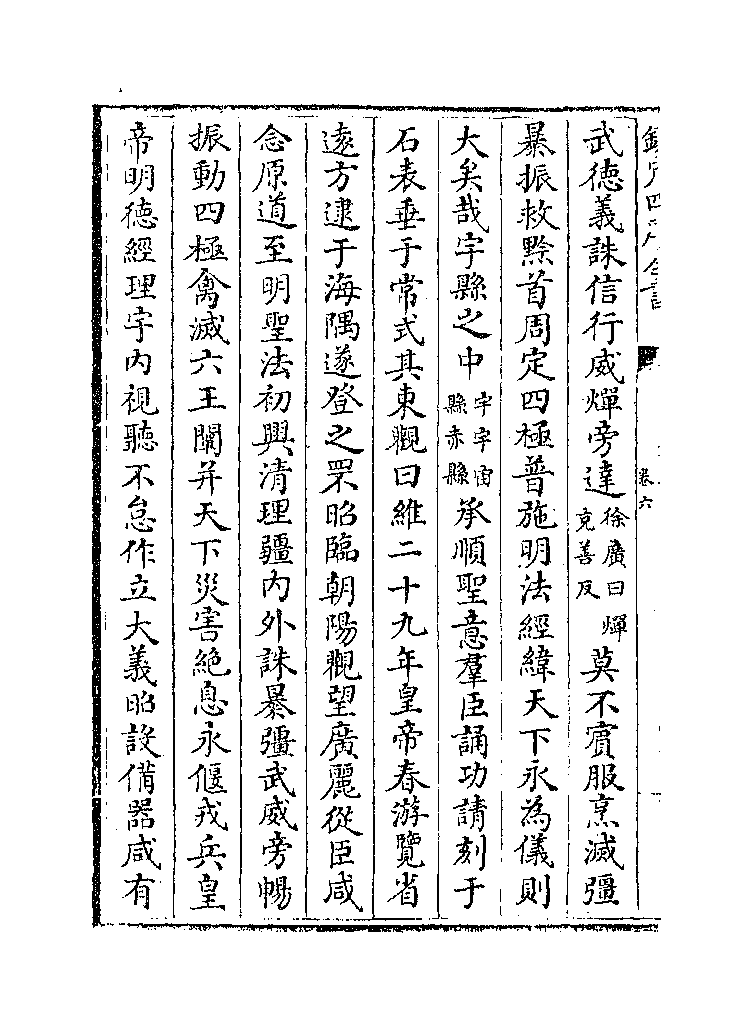 欽定四庫全書
卷六
武徳義誅信行威燀旁達徐廣曰燀充善反莫不賓服烹滅彊
暴振救黔首周定四極普施明法經緯天下永為儀則
大矣哉宇縣之中宇宇宙縣赤縣承順聖意羣臣誦功請刻于
石表垂于常式其東觀曰維二十九年皇帝春游覽省
逺方逮于海隅遂登之罘昭臨朝陽觀望廣麗從臣咸
念原道至明聖法初興清理疆内外誅暴彊武威旁暢
振動四極禽滅六王闡并天下災害絶息永偃戎兵皇
帝明徳經理宇内視聽不怠作立大義昭設備器咸有